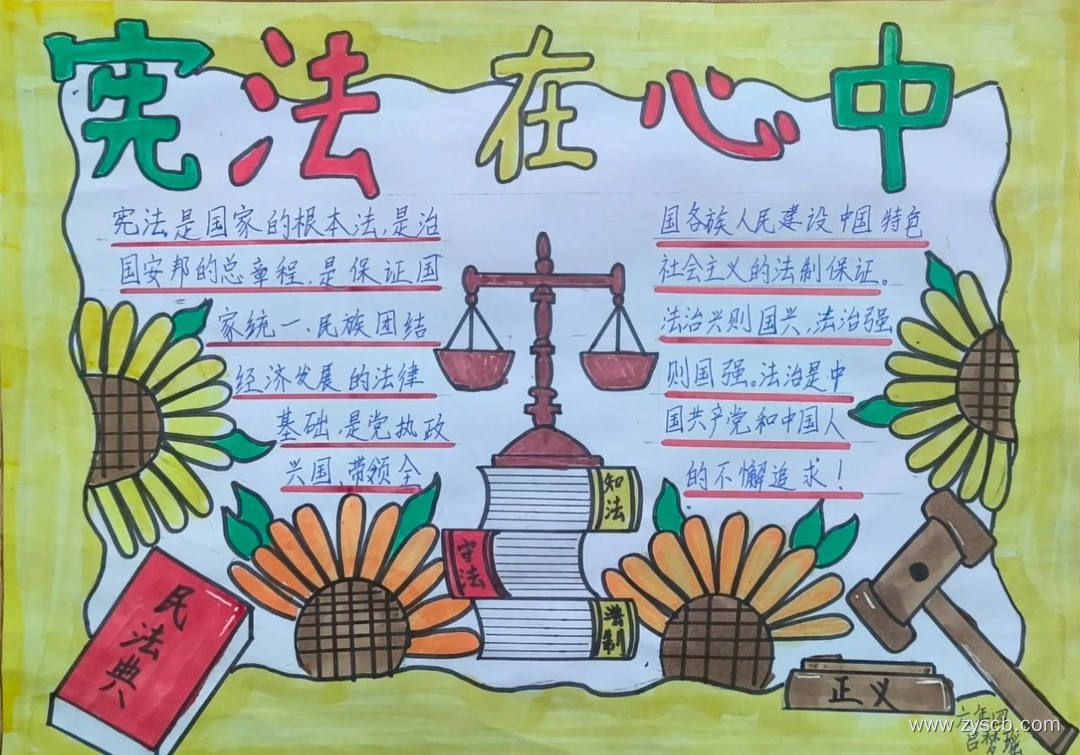 宪法在心中
宪法是国家的根本法,是治
国安邦的总章程,是保证国
家统一、民族团结
经济发展的法律
基础,是党执政
兴国,带领全
国各族人民建设中国特色
社会主义的法制保证。
法治兴则国兴,法治强
则国强。法治是中
国共产党和中国人
的不懈追求!
知法
守法
法制
民法典
正义
www.zyscb.com